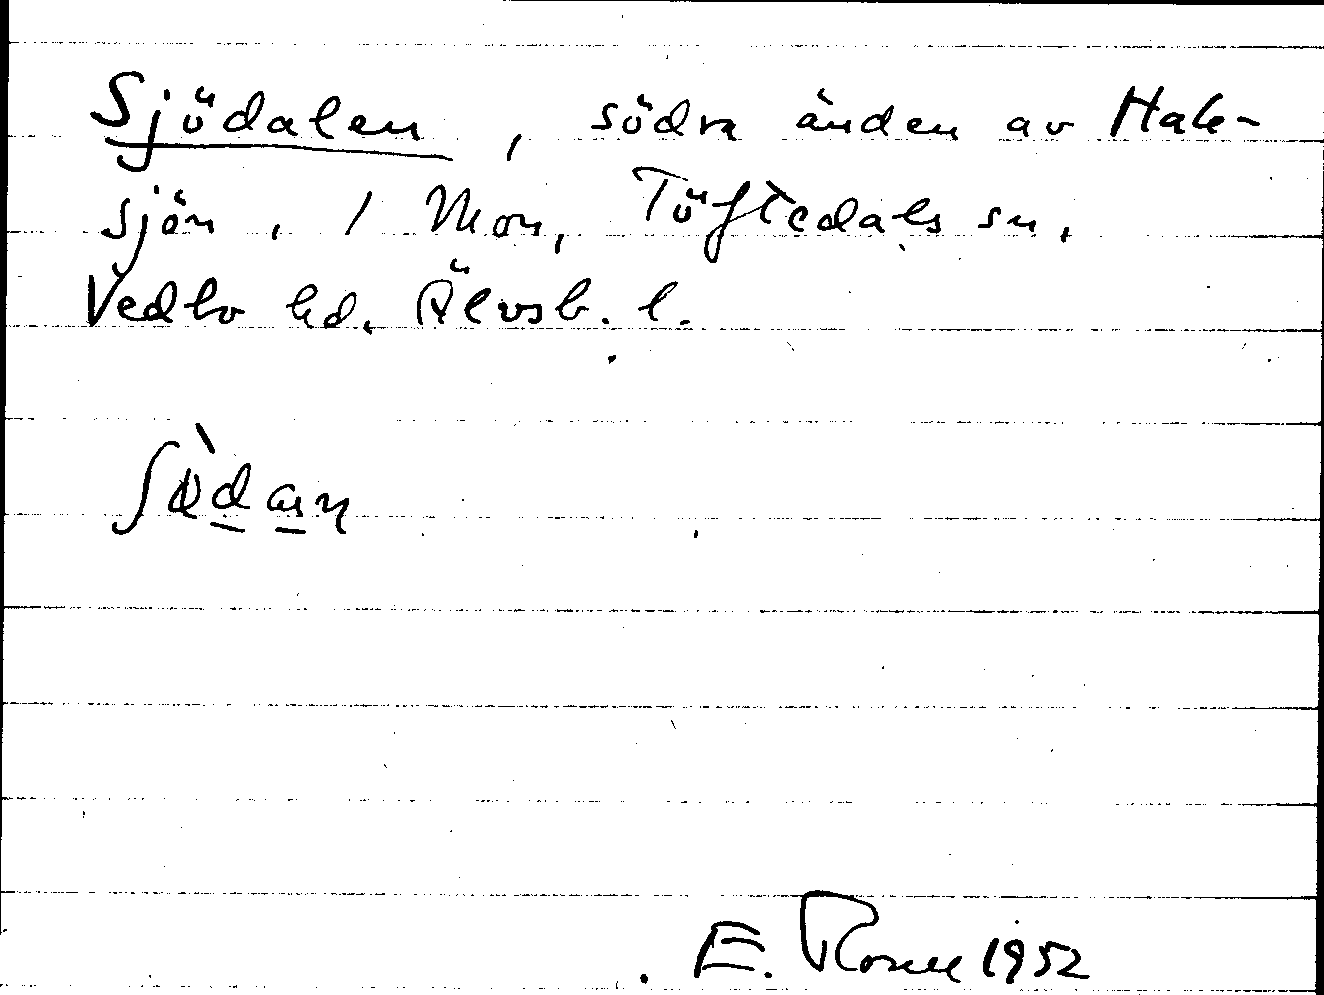 Sjödalen, södra änden av Hak-
sjön, 1 Mon, Töftedals sn,
Vedbo hd. Älvsb. l.
E. Rosell 1952